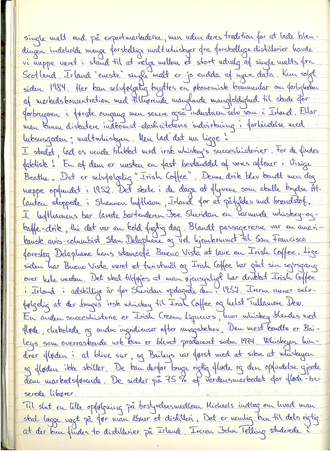 single malt end på exportmarkederne, men uden deres tradition for at lade blen-
dingen indeholde mange forskellige maltwhiskyer fra forskellige distillerier havde
vi næppe været i stand til at vælge mellem et stort udvalg af single malts fra
Scotland. Irland "eneste" single malt er jo endda af nyere dato. Kun solgt
siden 1984. Her kan selvfølgelig knyttes en økonomisk kommentar om farligheden
af markedskoncentration med tilhørende manglende mangfoldighed til skade for
forbrugeren i første omgang men senere også industrien selv som i Irland. Eller
man kunne diskutere indkomst elasticitetens indvirkning i forbindelse med
luksusgoden: maltwhiskyen. Men lad det nu ligge!
I stedet lad os vende blikket mod irsk whisky's successhistorier. For de findes
faktisk! En af dem er næsten en fast bestanddel af vores aftener: Uisige
Beatha. Det er selvfølgelig "Irish Coffee". Denne drik blev kendt men dog
næppe opfundet i 1952. Det skete i de dage at flyvene som skulle krydse At-
lanten stoppede i Shannon lufthavn, Irland for at påfyldes med brændstof.
I lufthavnens bar lavede bartenderen Joe Sheridan en varmende whiskey-og-
kaffe-drik, thi det var en kold fugtig dag. Blandt passagererne var en ameri-
kansk avis-columnist Stan Delaphane og vel hjemkommet til San Francisco
foreslog Delaphane hans stamcafé Buena Vista at lave en Irish Coffee. Lige
siden har Buena Vista været et turistmål og Irish Coffee har gået sin sejrsgang
over hele verden. Det skal tilføjes at man givetvis har drukket Irish Coffee
i Irland i adskillige år før Sheridan opdagede den i 1952. Irerne mener selv-
følgelig at der bruges irsk whiskey til Irish Coffee og helst Tullamore Dew.
En anden succeshistorie er Irish Cream Liqueurs, hvor whiskey blandes med
fløde, chokolade og andre ingredienser efter smagsbehov. Den mest kendte er Bai-
leys som overraskende nok kun er blevet produceret siden 1974. Whiskeyen hin-
drer fløden i at blive sur, og Baileys var først med at sikre at whiskeyen
og fløden ikke skiller. De kan derfor bruge rigtig fløde og den opfindelse gjorde
dem markedsførende. De sidder på 75 % af verdensmarkedet for fløde-ba-
serede likører.
Til slut en lille opfølgning på bestyrelsesmedlem Michaels indlæg om hvad man
skal lægge vægt på før man åbner et distilleri. Det er nemlig kun til dels rigtig
at der kun findes to distillerier på Irland. Ireren John Teeling studerede i